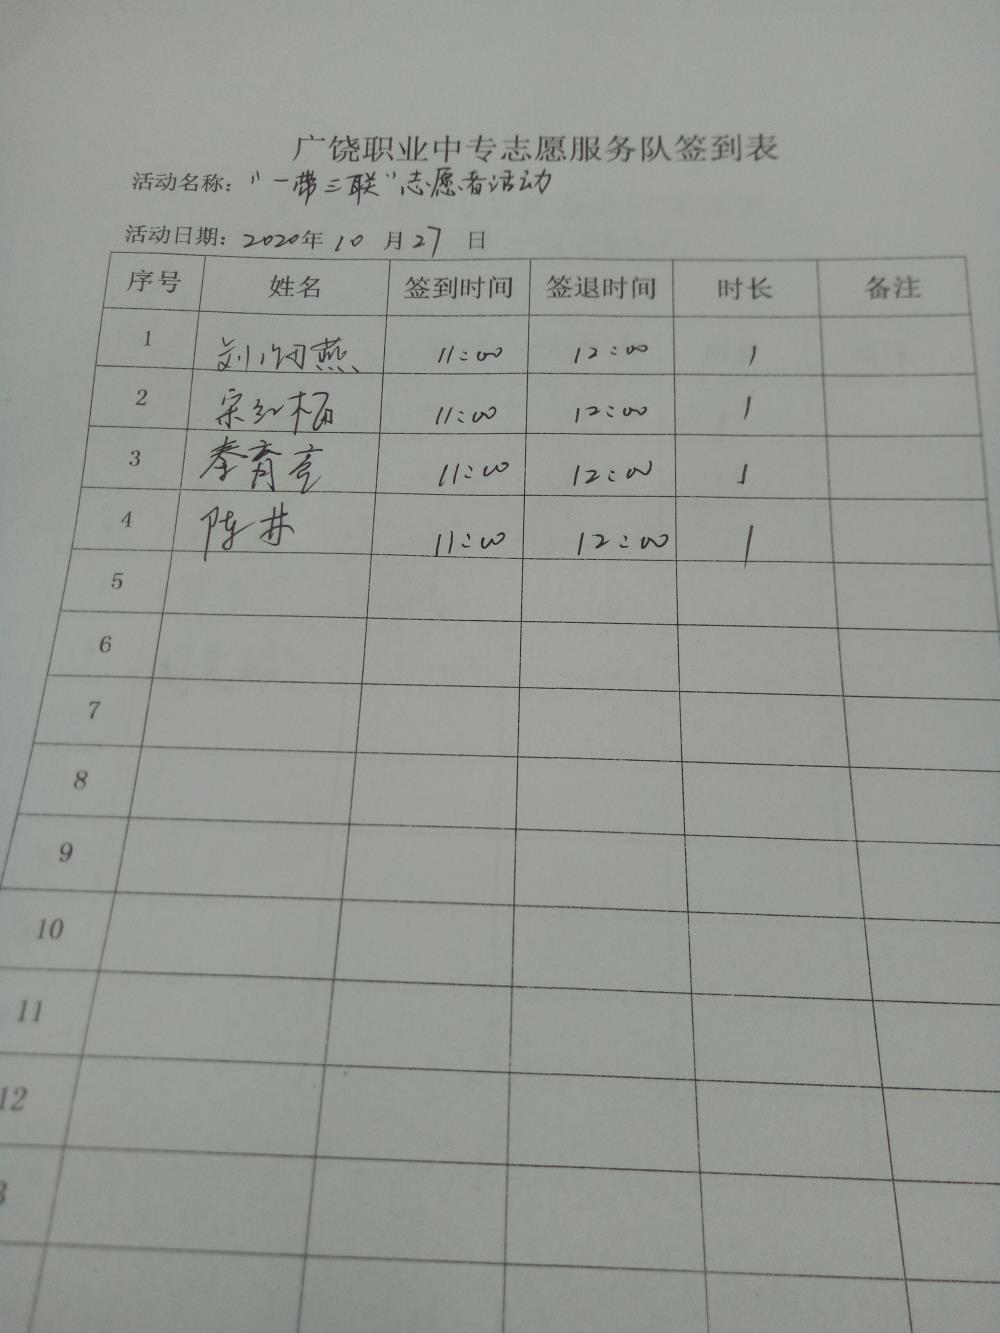 广饶职业中专志愿服务队签到表
活动名称："一带三联"志愿者活动
活动日期：2020年10月27日
序号 姓名 签到时间 签退时间 时长 备注
1 刘 燕 11:00 12:00 1
2 宋红梅 11:00 12:00 1
3 秦育亮 11:00 12:00 1
4 陈井 11:00 12:00 1
5
6
7
8
9
10
11
12
3